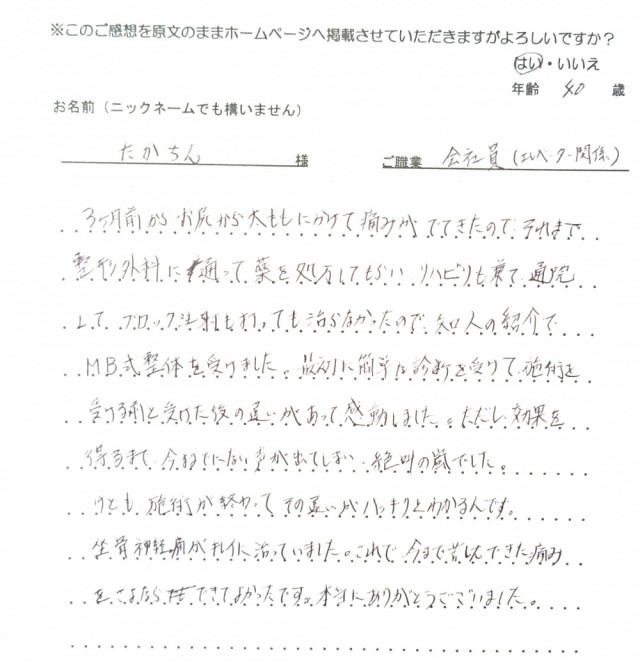 ※このご感想を原文のままホームページへ掲載させていただきますがよろしいですか？
はい・いいえ
年齢 40 歳
お名前（ニックネームでも構いません）
たかちん 様 ご職業 会社員（エレベーター関係）
3ヶ月前からお尻から太ももにかけて痛みがでてきたので、それまで
整形外科に通って薬を処方してもらい、リハビリも兼て通院
して、ブロック注射も打っても治らなかったので、知人の紹介で
MB式整体を受けました。最初に簡単な診断を受けて、施術を
受ける前と受けた後の違いがあって感動しました。ただし効果を
得るまで、今までにない声が出てしまい、絶叫の嵐でした。
けども、施術が終わって、その違いがハッキリとわかるんです。
坐骨神経痛がキレイに治っていました。これで、今まで苦しんできた痛み
をさよならできてよかったです。本当にありがとうございました。